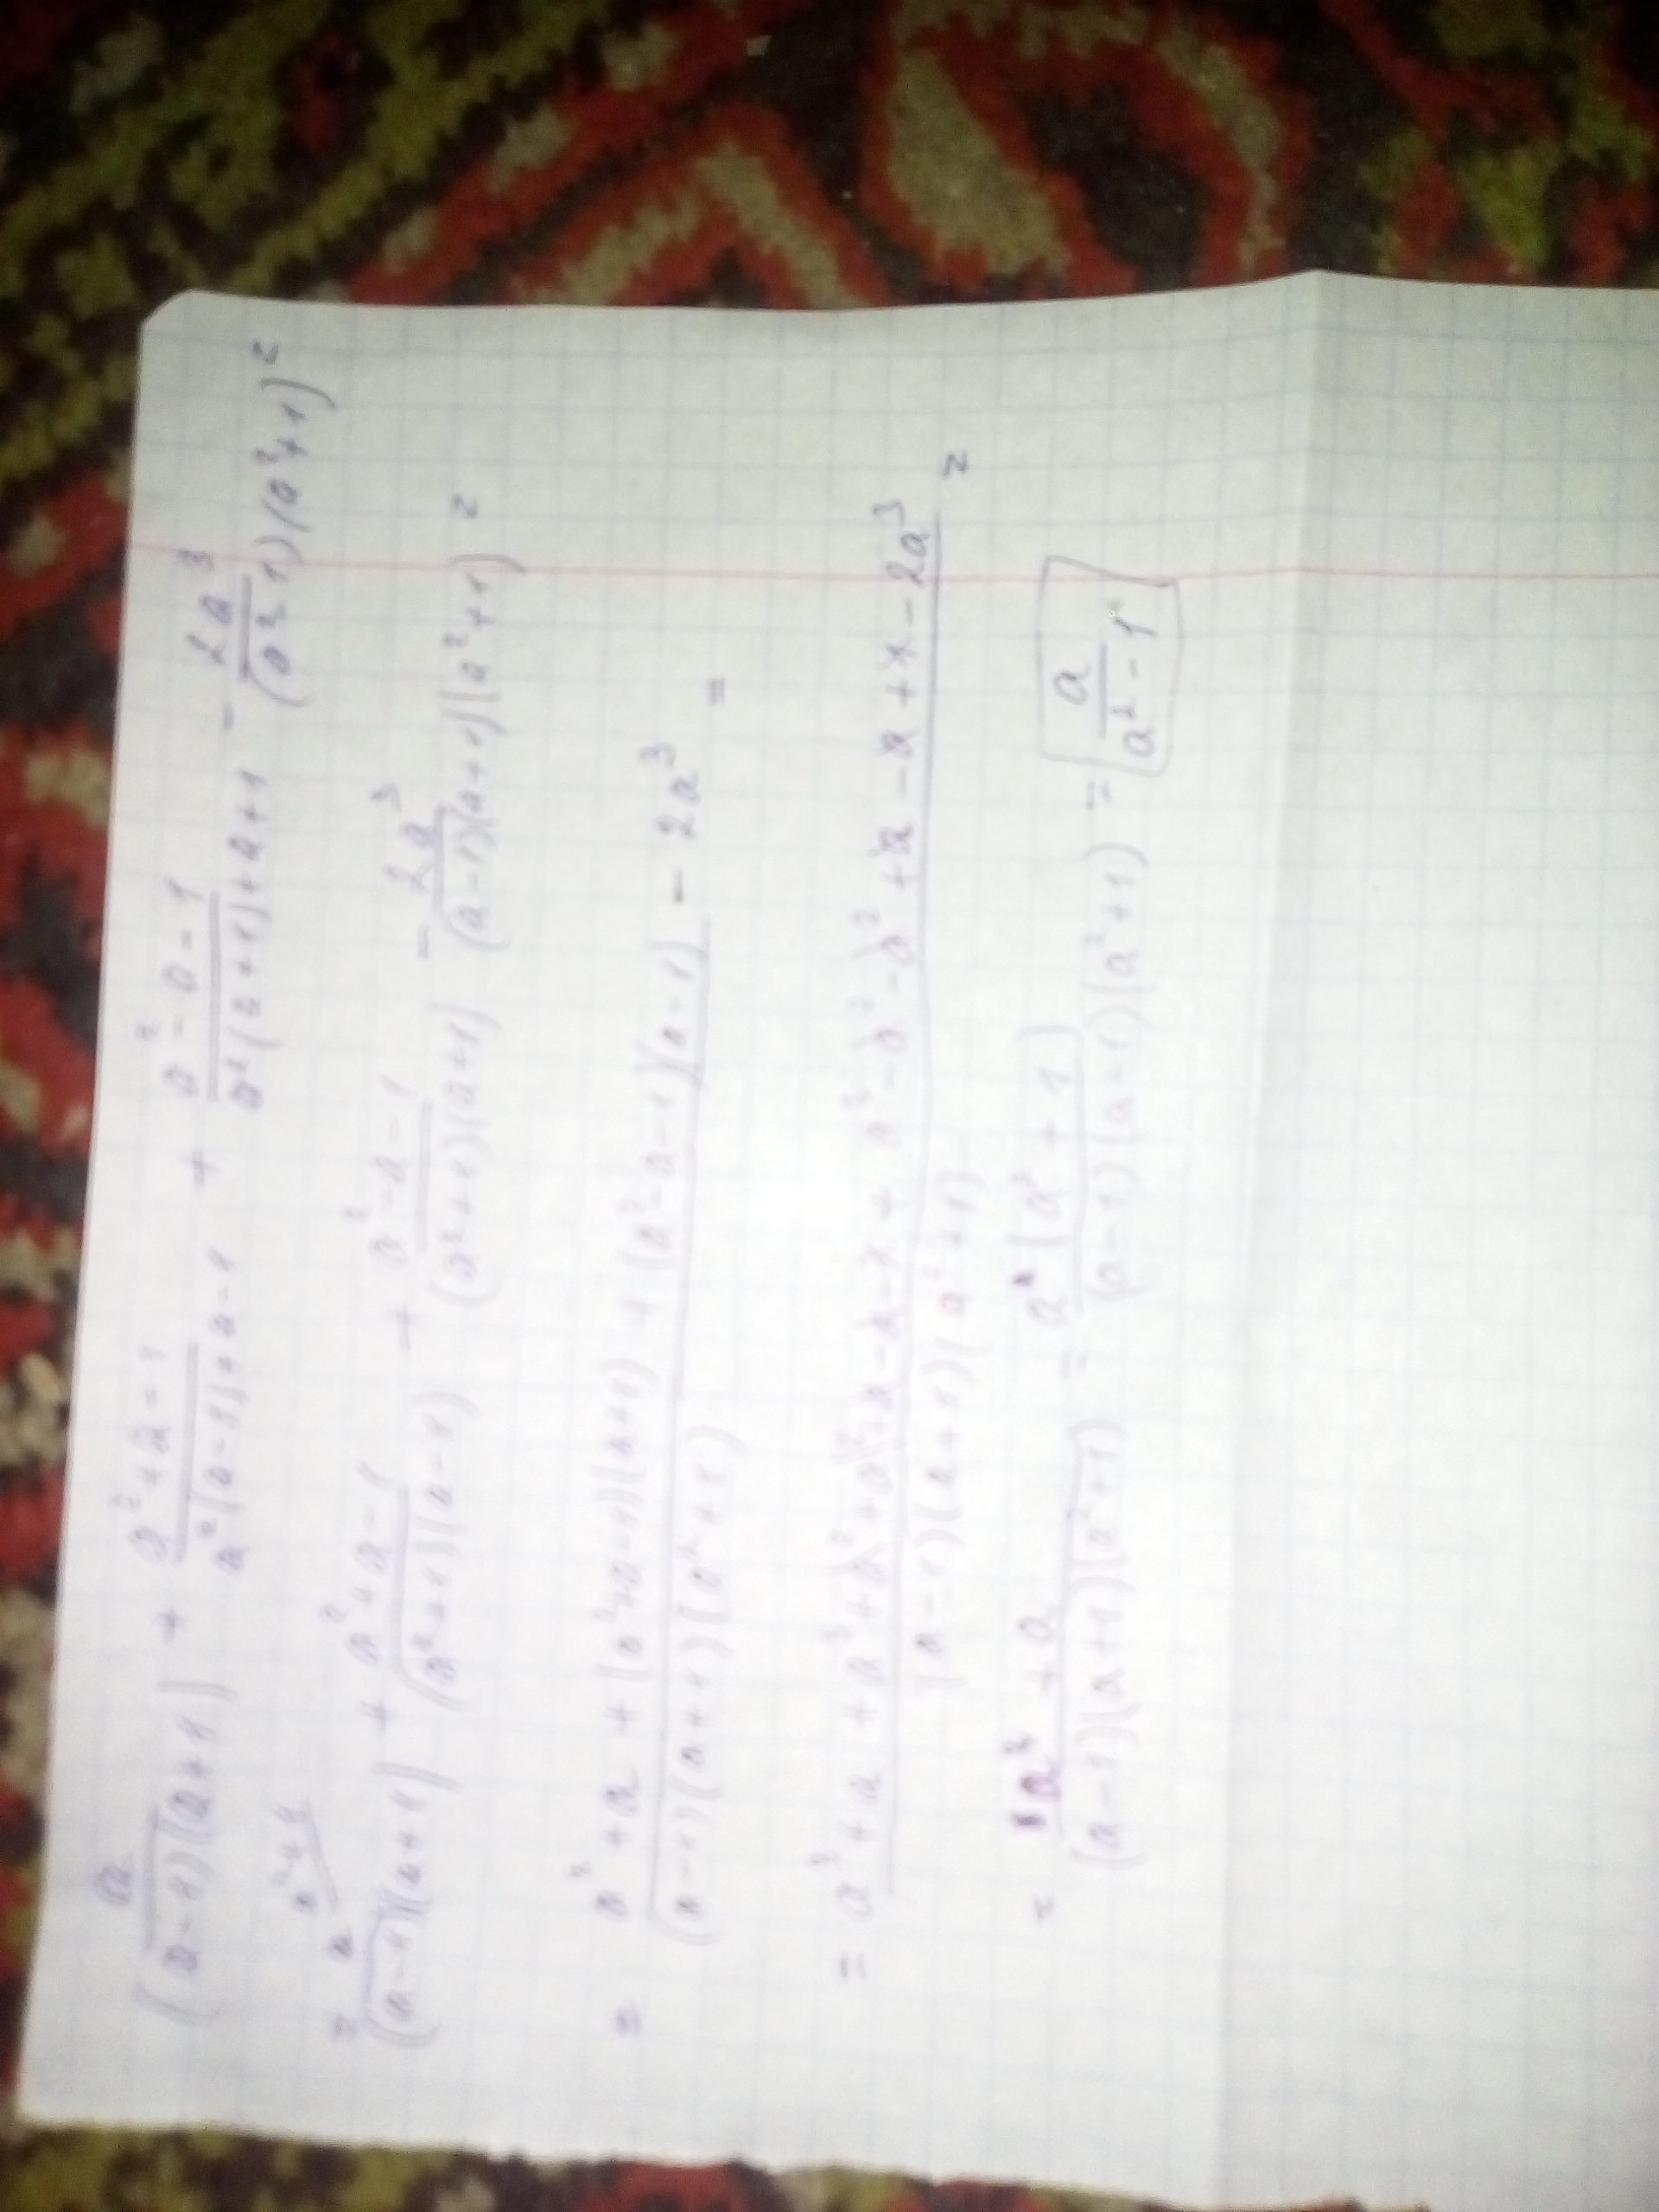 a/((a-1)(a+1)) + (a²+a-1)/(a²(a-1)+a-1) + (a²-a-1)/(a²(a+1)+a+1) - 2a³/((a²-1)(a²+1)) =
a²+1
= a/((a-1)(a+1)) + (a²+a-1)/((a²+1)(a-1)) + (a²-a-1)/((a²+1)(a+1)) - 2a³/((a-1)(a+1)(a²+1)) =
= (a³+a+(a²+a-1)(a+1)+(a²-a-1)(a-1)-2a³)/((a-1)(a+1)(a²+1)) =
= (a³+a+a³+a²+a²+a-a-1+a³-a²-a²+a-a+1-2a³)/((a-1)(a+1)(a²+1)) =
= (a³+a)/((a-1)(a+1)(a²+1)) = a(a²+1)/((a-1)(a-1)(a²+1)) = a/(a²-1)